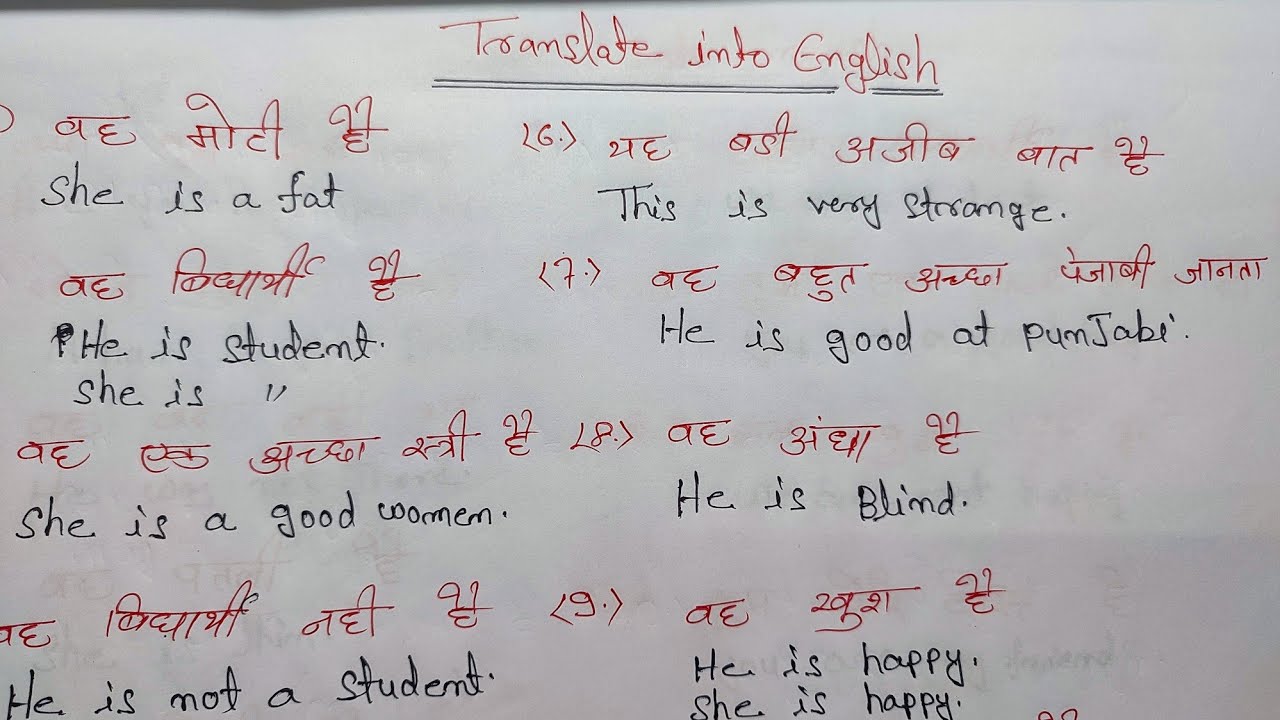 Translate into English
वह मोटी है
She is a fat
वह विद्यार्थी है
He is student.
She is "
वह एक अच्छा स्त्री है
She is a good women.
वह विद्यार्थी नही है
He is not a student.
(6.) यह बडी अजीब बात है
This is very strange.
(7.) वह बहुत अच्छा पंजाबी जानता
He is good at punJabi.
(8.) वह अंधा है
He is Blind.
(9.) वह खुश है
He is happy.
She is happy.